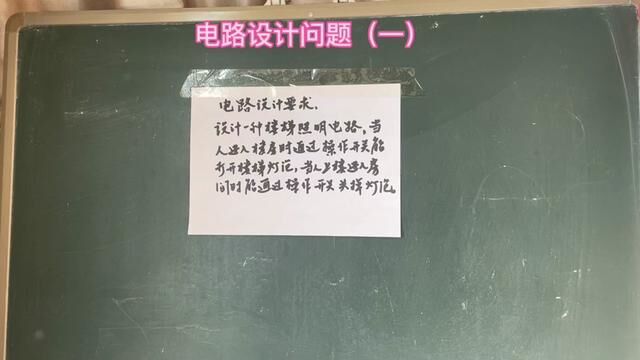 电路设计问题（一）
电路设计要求.
设计一种楼梯照明电路,当
人进入楼房时通过操作开关能
打开楼梯灯泡,当人上楼进入房
间时能通过操作开关关梯灯泡。